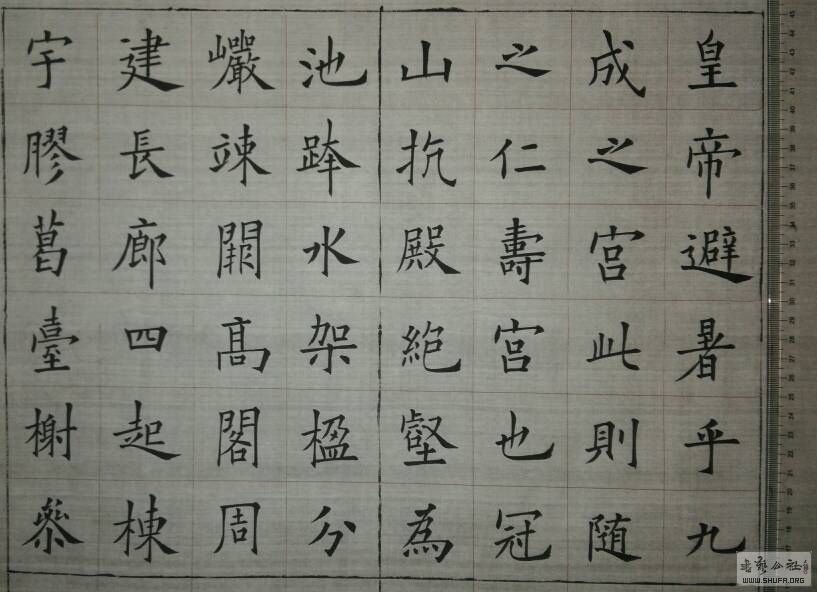 皇帝避暑乎九
成之宫此則随
之仁壽宫也冠
山抗殿絶壑為
池跨水架楹分
巗竦闕髙閣周
建長廊四起棟
宇膠葛臺榭叅
WWW.SHUFA.ORG